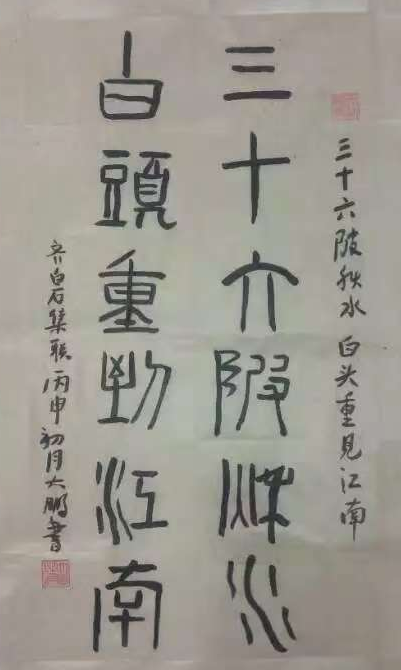 三十六陂秋水 白头重见江南
三十六陂秋水
白頭重到江南
齐白石集联 丙申初月大鹏書